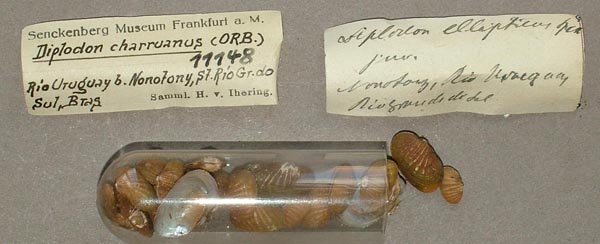 Senckenberg Museum Frankfurt a. M.
Diplodon charruanus (ORB.)
11148
Rio Uruguay b. Nonotony, St. Rio Gr. do
Sul, Bras
Samml. H. v. Ihering.
Diplodon ellipticus
juv.
Nonotony, Rio Uruguay
Rio grande do Sul